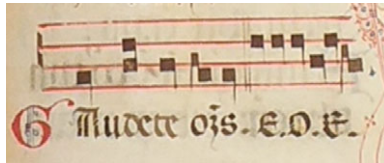 Gaudete oēs. E.O.E.